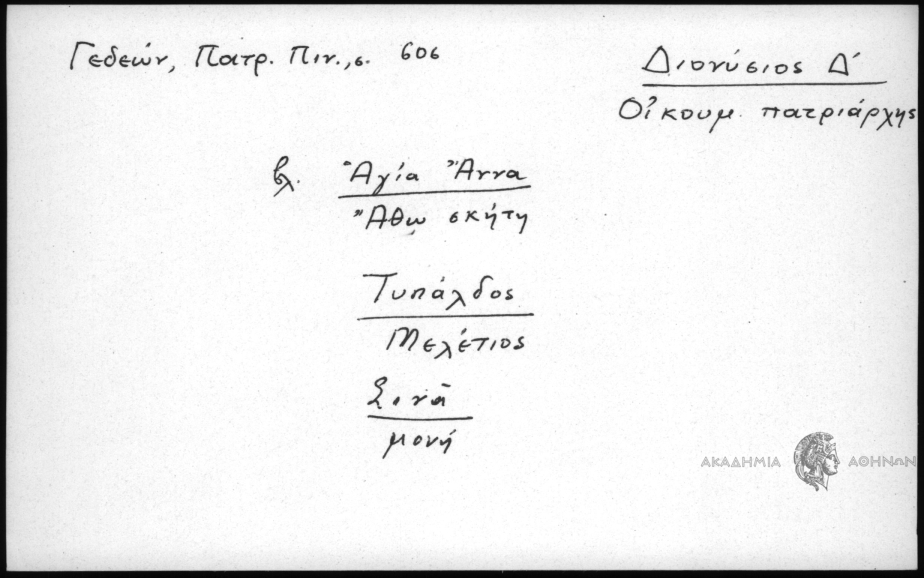 Γεδεών, Πατρ. Πιν., σ. 606
Διονύσιος Δ´
Οἰκουμ. πατριάρχης
βλ. Ἁγία Ἄννα
Ἄθω σκήτη
Τυπάλδος
Μελέτιος
Σινᾶ
μονή
ΑΚΑΔΗΜΙΑ ΑΘΗΝΩΝ